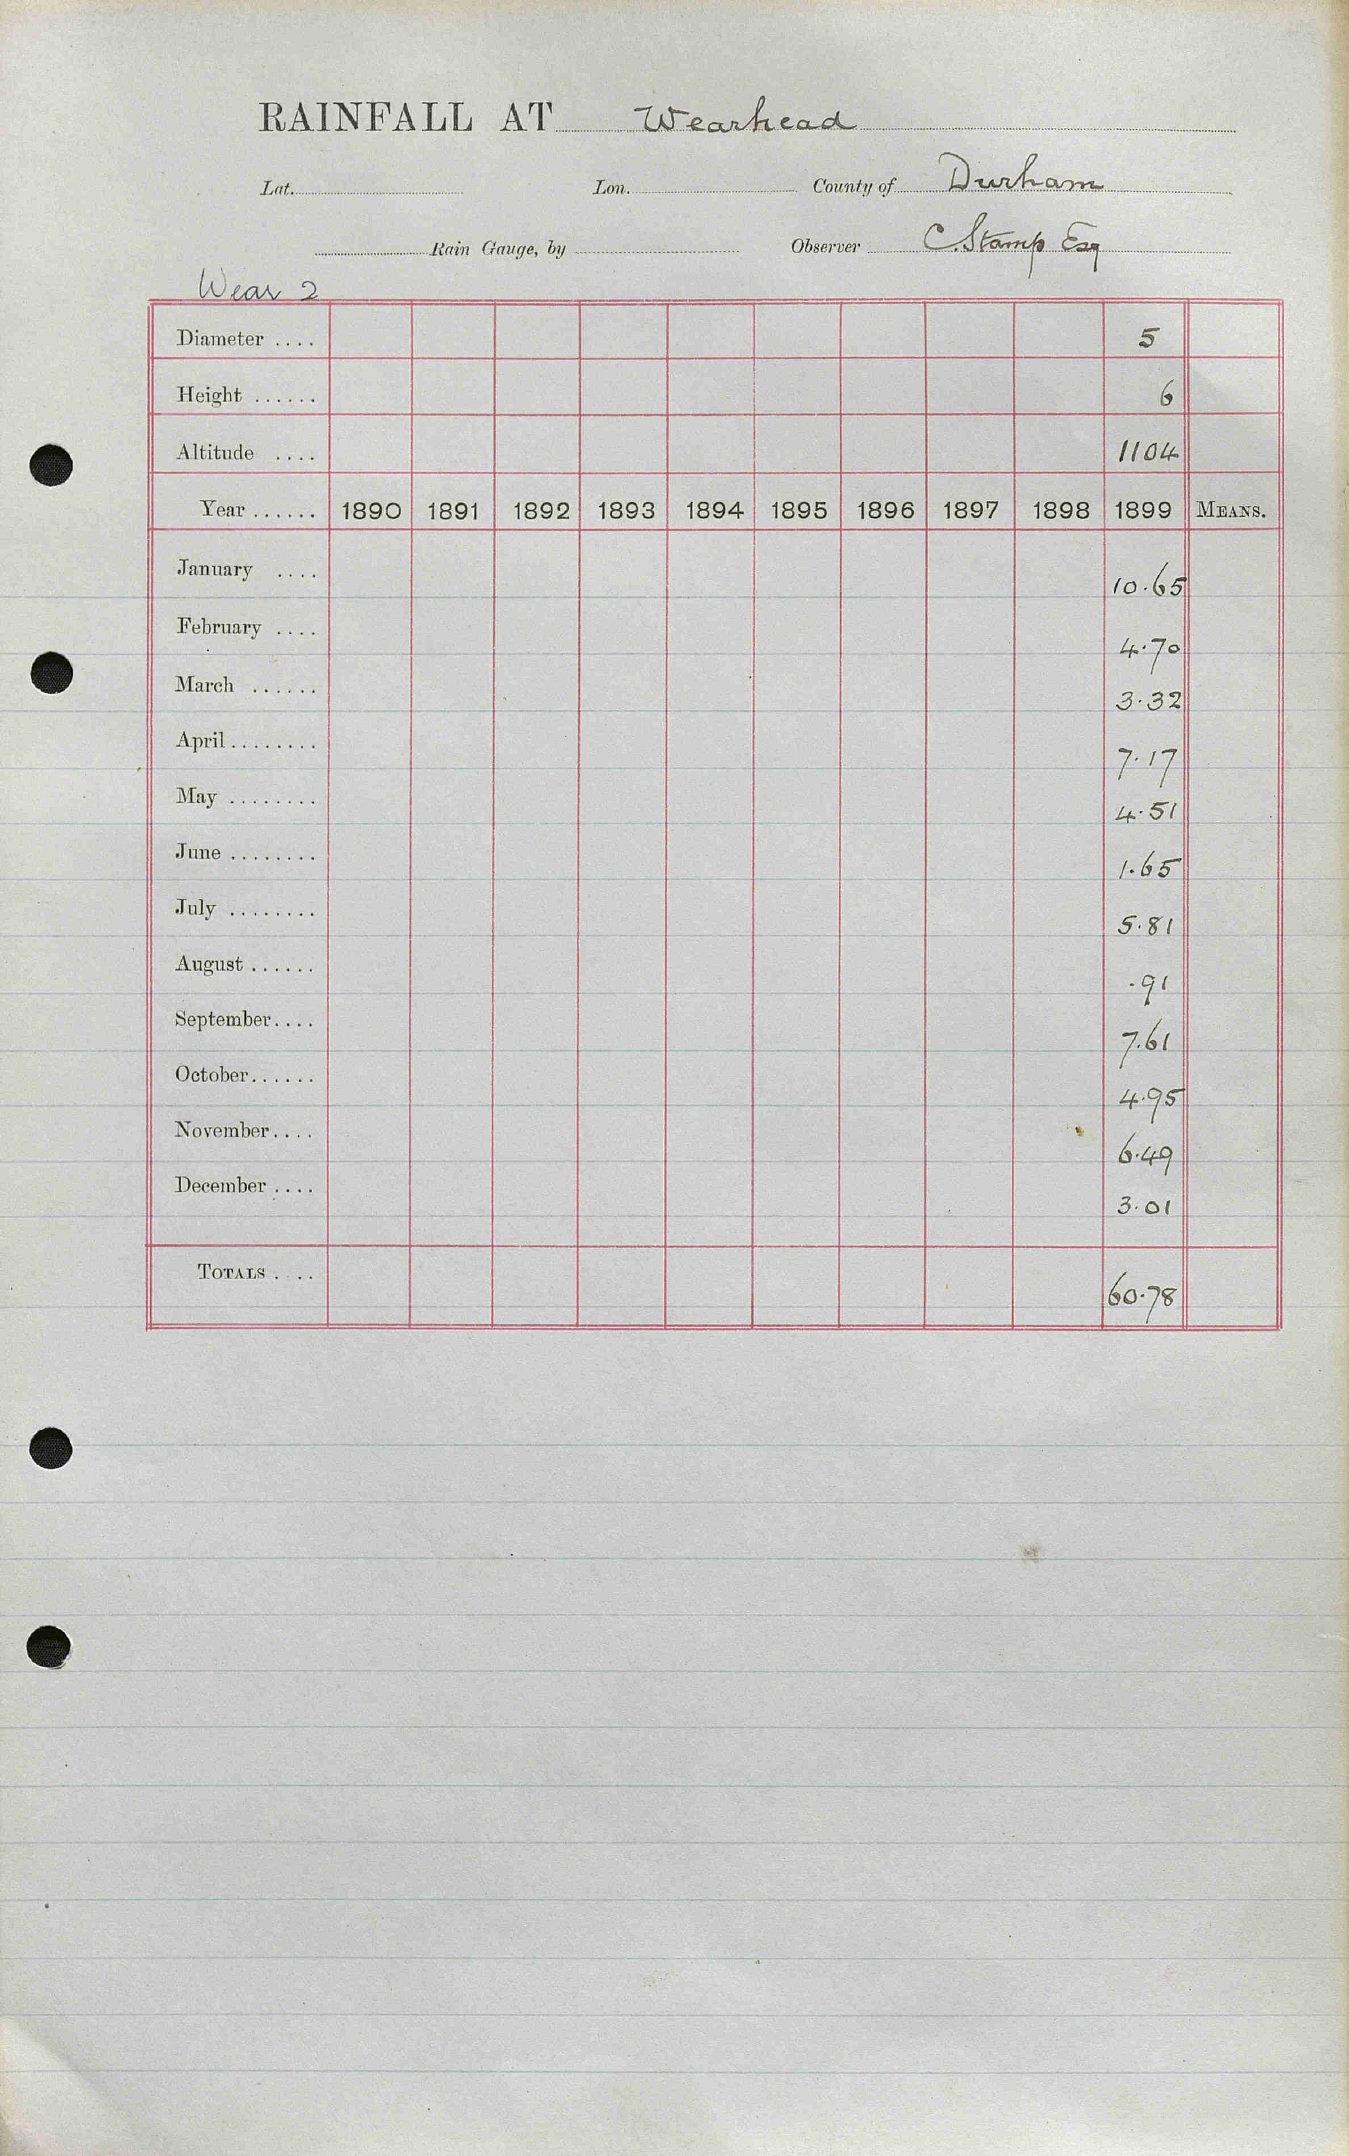 RAINFALL AT Wearhead
Lat. Lon. County of Durham
Rain Gauge, by Observer C. Stamp Esq
Wear 2
Diameter .... 5
Height ...... 6
Altitude .... 1104
Year ...... 1890 1891 1892 1893 1894 1895 1896 1897 1898 1899 MEANS.
January .... 10.65
February .... 4.70
March ...... 3.32
April ........ 7.17
May ........ 4.51
June ........ 1.65
July ........ 5.81
August ...... .91
September .... 7.61
October ...... 4.95
November .... 6.49
December .... 3.01
TOTALS .... 60.78